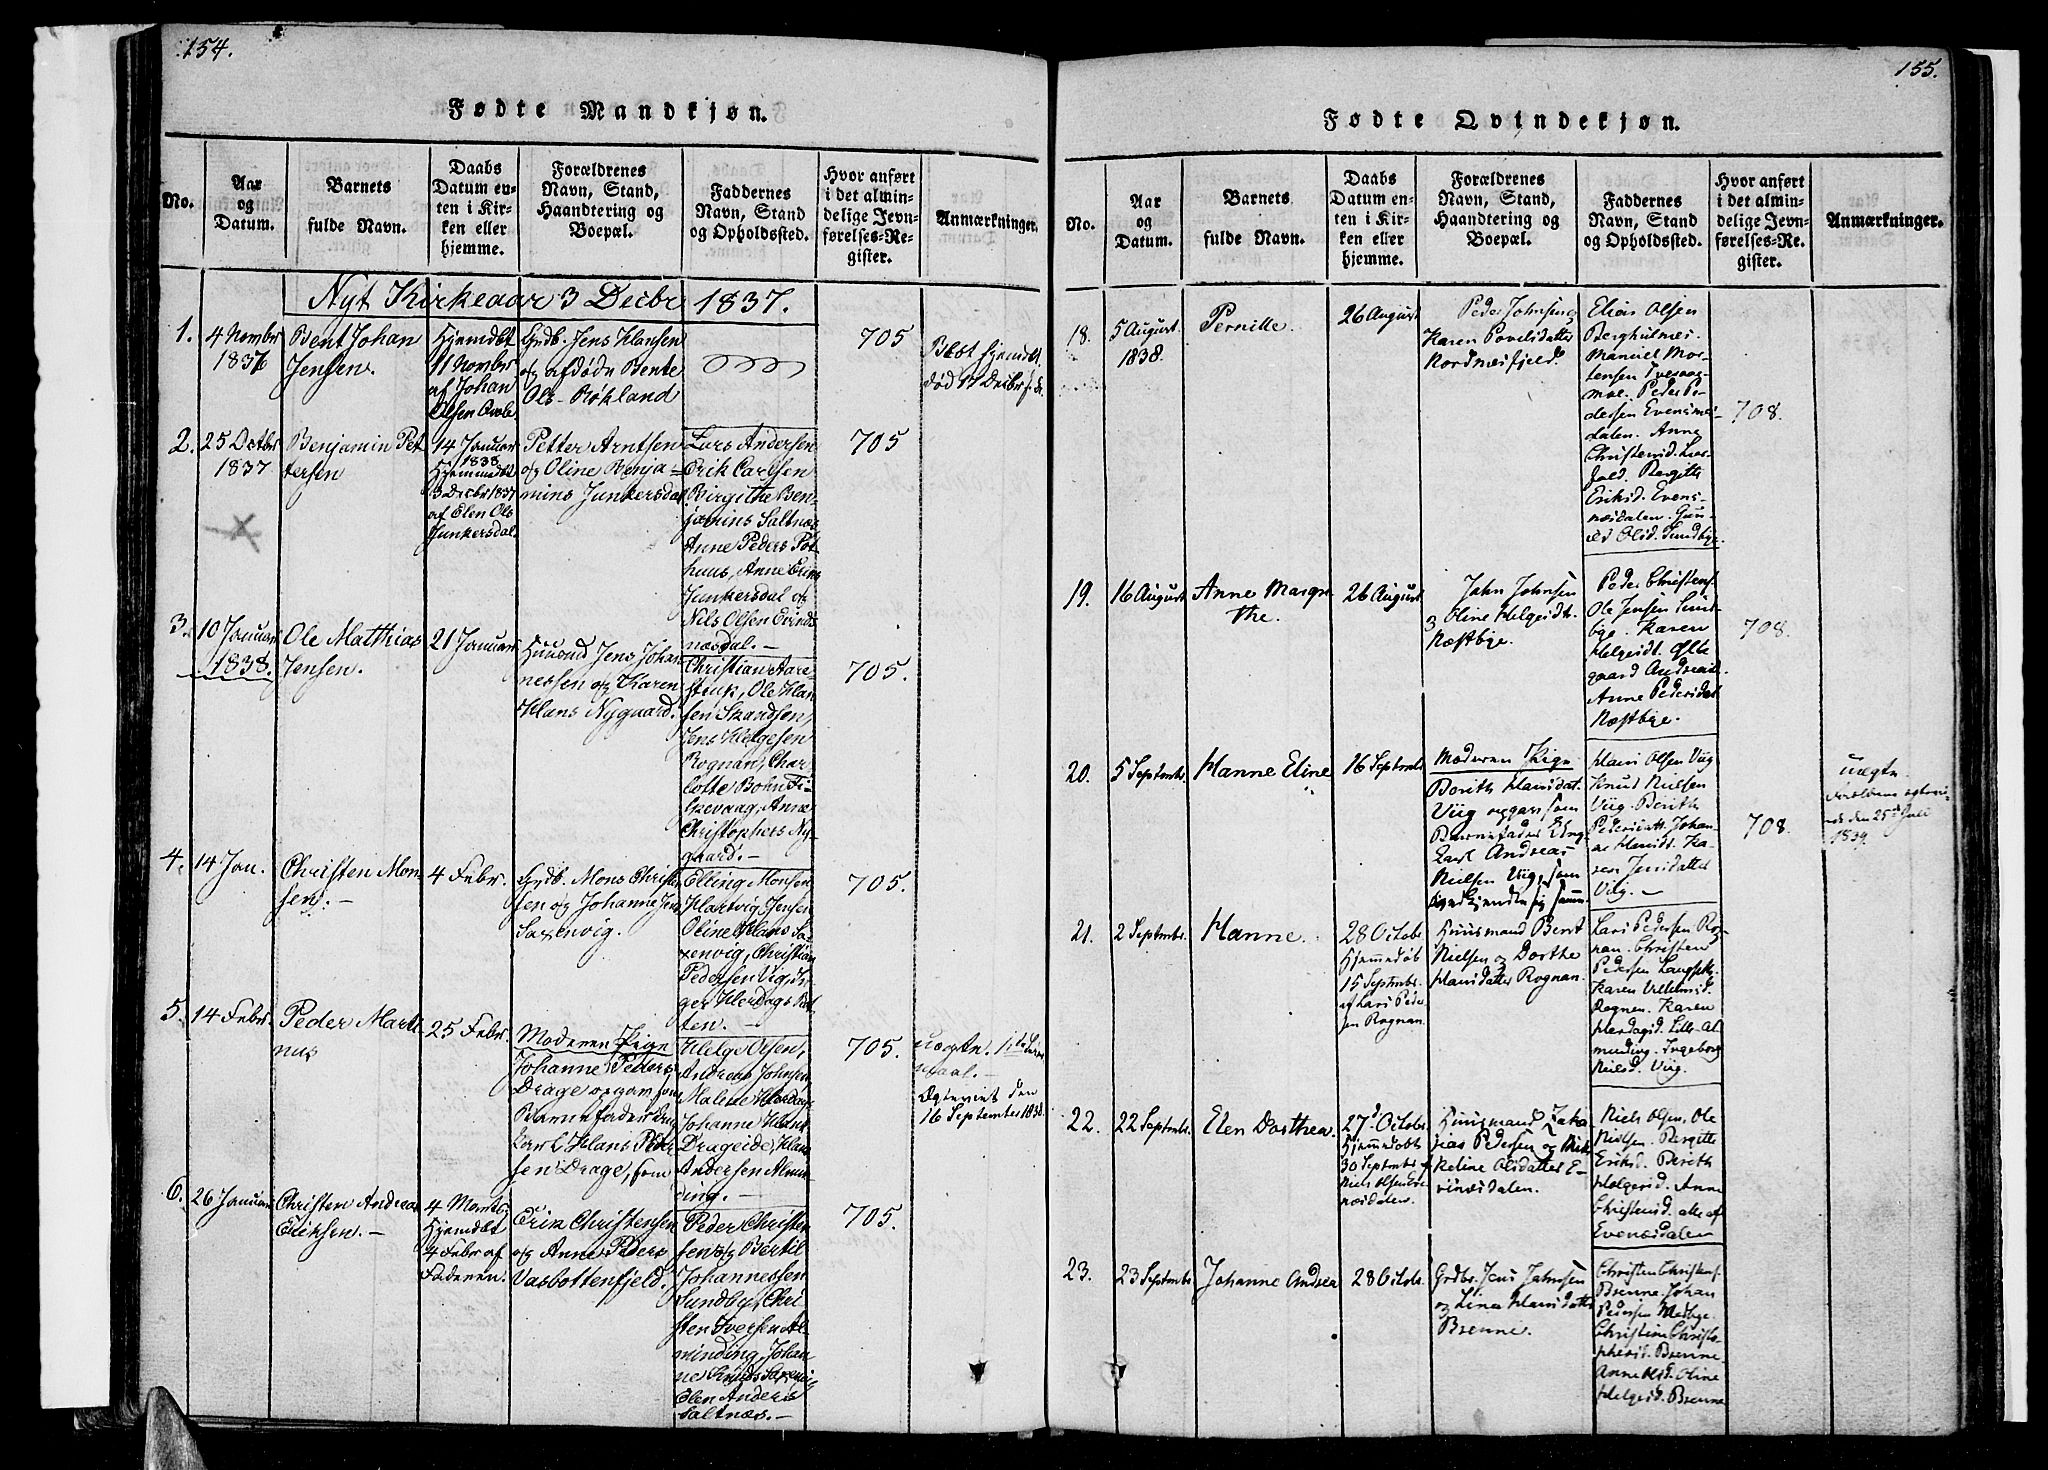 154.
Fødte Mandkjøn.
No.
Aar
og
Datum.
Barnets
fulde Navn.
Daabs
Datum en-
ten i Kir-
ken eller
hjemme.
Forældrenes
Navn, Stand,
Haandtering og
Boepæl.
Faddernes
Navn, Stand
og Opholdssted.
Hvor anført
i det almin-
delige Jevn-
førelses-Re-
gister.
Anmærkninger.
Nyt Kirkeaar 3 Decbr 1837.
1.
4 Novmbr
1837
Bent Johan
Jensen.
Hjemdbt
11 Novmbr
af Johan
Olsen
Grdb. Jens Hansen
og afdøde Bente
Ols. Røkland
705
Blot hjemdbt.
død 17 Decbr
2.
25 Octbr
1837
Benjamin Pet
tersen
14 Januar
1838
Hjemmdbt
3 Decbr 1837
af Elen Ols
Junkersdal.
Petter Arntsen
og Oline Benja-
mins Junkersdal
Lars Andersen
Erik Carlsen
Birgithe Ben-
jamins Saltnæs
Anne Peders Pot-
huus, Anne
Junkersdal og
Nils Olsen Evinds
næsdal. -
705
3.
10 Januar
1838.
Ole Matthias
Jensen.
21 Januar
Huusmd Jens Johan
nessen og Karen
Hans Nygaard.
Christian Aare-
strup, Ole Han
sen Skandsen,
Jens Helgesen
Rognan, Char
lotte Bohn Fi-
skevaag, Anne
Christophers Ny-
gaard. -
705.
4.
14 Jan.
Christen Mon-
sen. -
4 Febr.
Grdb. Mons Christen
sen og Johanne Jens
Saxenvig.
Elling Monsen
Hartvig Jensen
Oline Hans Sa-
xenvig, Christian
Pedersen Vig, In-
ger Herdags Bot
ten. -
705.
5.
14 Febr.
Peder Marti
nus
25 Febr.
Moderen Pige
Johanne Peders
Drage
Barnefader Ung
karl Hans Peder
sen Drage, som
Helge Olsen,
Andreas Johnsen
Malene Herdags
Johanne Hans
Drageide, Hans
Andersen Almin
ding. -
705.
uægte. 1ste Leier
maal. -
Ægteviet den
16 September 1838.
6.
26 Januar
Christen Andreas
Eriksen. -
4 Marts
Hjemdbt
4 Febr af
Faderen.
Erik Christensen
og Anne Peders
Vasbottenfjeld.
Peder Christen
sen og Bertil
Johannessen
Sundby, Chri-
sten Iversen Al-
minding, Johan
ne Knuds Saxenvig
Elen Anders
Saltnæs. -
705.
155.
Fødte Qvindekjøn.
No.
Aar
og
Datum.
Barnets
fulde Navn.
Daabs
Datum en-
ten i Kir-
ken eller
hjemme.
Forældrenes
Navn, Stand,
Haandtering og
Boepæl.
Faddernes
Navn, Stand
og Opholdssted.
Hvor anført
i det almin-
delige Jevn-
førelses-Re-
gister.
Anmærkninger.
18.
5 August.
1838.
Pernille.
26 August
Peder Johnsen
Karen Povelsdatter
Nordnæsfjeld.
Elias Olsen
Berghulnes.
Manuel Mor-
tensen Tveraag-
moe. Peder Pe-
dersen Evensnæs-
dalen. Anne
Christensd.
Bergitte
Eriksd. Evens-
næsdalen. Gun-
ild Olsd. Sundbye.
708.
19.
16 August
Anne Margre
the.
26 August
John Johnsen
og Oline Helgesdt.
Næstbye.
Peder Christens.
Ole Jensen Sund-
bye. Karen
Helgesdt.
gaard Andreas
Anne Pedersdat
Næstbye.
708.
20.
5 Septmbr.
Hanne Eline
16 Septmbr
Moderen Pige
Berith Hansdat.
Viig opgav som
Barnefader Ung-
karl Andreas
Nielsen Viig, som
Hans Olsen Viig
Knud Nielsen
Viig. Berith
Pedersdatt. Johan-
ne Hansdt. Ka-
ren Jensdatter
Viig. -
708.
uægte.
Forældrene
den 25de Juli
1839.
21.
2 Septmbr.
Hanne.
28 Octobr
Hjemmedøb
15 Septmbr.
af Lars Peder
sen Rognan.
Huusmand Bent
Nielsen og Dorthe
Hansdatter Rognan.
Lars Pedersen Rog-
nan. Christen
Pedersen
Karen Villumsd.
Rognan. Karen
Herdagsd. Lille-Al-
minding. Ingeborg
Nielsd. Viig.
22.
22 Septmbr.
Elen Dorthea.
27d Octobr
Hjemmedøbt
30 Septmbr af
Niels Olsen Eve-
næsdalen.
Huusmand Zaka-
rias Pedersen og Mik
keline Olsdatter E-
vinæsdalen.
Niels Olsen, Ole
Nielsen. Bergitte
Eriksd. Berith
Helgesd. Anne
Christensd. alle af
Evenæsdalen
23.
23 Septmbr.
Johanne Andrea
28 Octobr.
Grdbr. Jens Johnsen
og Lina Hansdatter
Brenne.
Christen Christens.
Brenne. Johan
Pedersen Medbye
Christine Christo-
phersd. Brenne.
Anne Olsd. Oline
Helgesd. Brenne